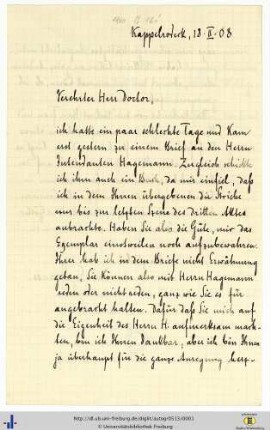 Kappelrodeck, 18.II.08
Verehrter Herr Doctor,
ich hatte ein paar schlechte Tage und kam
erst gestern zu einem Brief an den Herrn
Intendanten Hagemann. Zugleich schickte
ich ihm auch ein Buch, da mir einfiel, daß
ich in dem Ihnen übergebenen die Striche
nur bis zur letzten Scene des dritten Aktes
anbrachte. Haben Sie also die Güte, mir das
Exemplar einstweilen noch aufzubewahren.
Ihrer hab ich in dem Briefe nicht Erwähnung
getan, Sie können also mit Herrn Hagemann
reden oder nicht reden, ganz wie Sie es für
angebracht halten. Dafür daß Sie mich auf
die Eigenheit des Herrn H. aufmerksam mach-
ten, bin ich Ihnen dankbar, aber ich bin Ihnen
ja überhaupt für die ganze Anregung herz-
http://dl.ub.uni-freiburg.de/diglit/autogr0513/0001
© Universitätsbibliothek Freiburg